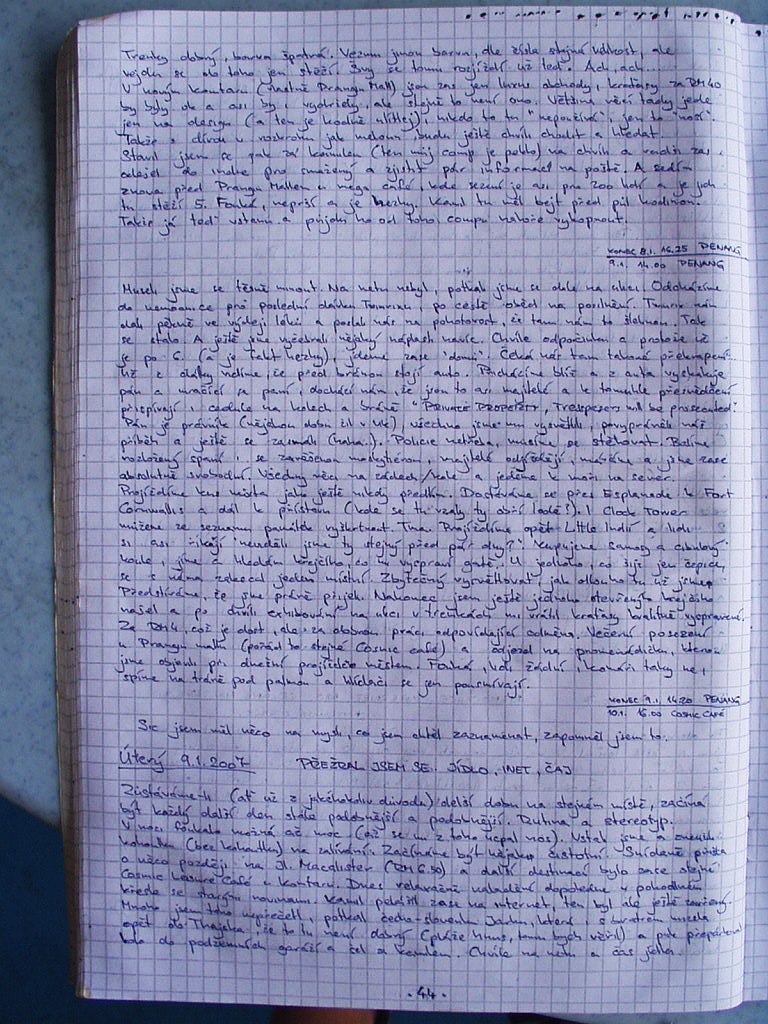 Trenky dobrý, barva špatná. Vezmu jinou barvu, dle čísla stejná velikost, ale
vejdu se do toho jen stěží. Švy se tomu rozjíždí už teď. Ach, ach...
V novým komtaru (vlastně Prangin Mall) jsou zas jen luxus obchody, kraťasy za RM 40
by byly ok a asi by i vydržely, ale stejně to není ono. Většina věcí tady jede
jen na design (a ten je hodně ulítlej) nikdo to tu "nepoužívá", jen to "nosí".
Takže s dírou v rozkroku jak meloun budu ještě chvíli chodit a hledat.
Stavil jsem se pak za Kamilem (ten můj comp je pošlo) na chvíli a vyrazil zas
odejet do indie pro smažený a zjistit pár informací na poště. A sedím
znova před Prangin Mallem u mega café, kde sezení je asi pro 200 lidí a je jich
tu stěží 5. Fouká, neprší a je hezky. Kamil tu měl bejt před půl hodinou.
Takže já teď vstanu a půjdu ho od toho compu nahoře vykopnout.
KONEC 8.1. 16.25 PENANG
9.1. 14.00 PENANG
Museli jsme se těsně minout. Na netu nebyl, potkali jsme se dole na ulici. Odcházíme
do nemocnice pro poslední dávku Tamixu, po cestě oběd na posilnění.
dali pěkně ve výdeji léků a poslali nás na pohotovost, že tam nám to šlehnou. Tak
se stalo. A ještě jsme vyžebrali nějaký náplasti navíc. Chvíle odpočinku a protože už
je po 6. (a je fakt hezky), jdeme zase "domů". Čeká nás tam takové překvapení.
Už z dálky vidíme, že před bránou stojí auto. Přicházíme blíž a z auta vyskakuje
pán a mračící se paní, dochází nám, že jsou to asi majitelé a k tomuhle přesvědčení
přispívají i cedule na kolech a bráně "Private Property, Trespassers will be prosecuted".
Pán je právník (nějakou dobu žil v UK), všechno jsme mu vysvětlili, povyprávěli náš
příběh a ještě se zasmáli (haha..). Policie netřeba, musíme se stěhovat. Balíme
rozložený spaní i se zavěšenou moskytiérou, majitelé odjíždějí, máváme a jsme zase
absolutně svobodní. Všechny věci na zádech/kole a jedeme k moři na sever.
Projíždíme kus města jako ještě nikdy předtím. Dostáváme se přes Esplanade k Fort
Cornwallis a dál k přístavu (kde se tu vzaly ty obří lodě?). I Clock Tower
můžeme ze seznamu památek vyškrtnout. Tma. Projíždíme opět Little Indií a lidi
si asi říkají "neviděli jsme ty stejný před pár dny?". Kupujeme samosy a cibulový
koule, jíme a hledám krejčího, co mi vyspraví gatě. U jednoho, co šije jen čepice,
se s náma zakecal jeden místní. Zbytečný vysvětlovat, jak dlouho tu už jsme.
Předstíráme, že jsme právě přijeli. Nakonec jsem ještě jednoho otevřenýho krejčího
našel a po chvíli exhibování na ulici v trenkách mi vrátil kraťasy kvalitně vypravený.
Za RM4, což je dost, ale za dobrou práci odpovídající odměna. Večerní posezení
u Prangin mallu (pořád to stejné Cosmic café) a odjezd na promenádičku, kterou
jsme objevili při dnešní projížďce městem. Fouká, lidi žádní, komáři taky ne,
spíme na trávě pod palmou a hlídači se jen pousmívají.
KONEC 9.1. 14.20 PENANG
10.1. 16.00 COSMIC CAFÉ
Sic jsem měl něco na mysli, co jsem chtěl zaznamenat, zapomněl jsem to.
Úterý 9.1.2007 PŘEŽRAL JSEM SE. JÍDLO, INET, ČAJ
Zůstáváme-li (ať už z jakéhokoliv důvodu) delší dobu na stejném místě, začíná
být každý další den stále podobnější a podobnější. Rutina a stereotyp.
V noci foukalo možná až moc (až se mi z toho ucpal nos). Vstali jsme a
kohoutku (bez kohoutku) na zalívání. Začínáme být nějaký čistotní. Snídaně pizza
a něco později na Jl. Macalister (RM 6.50) a další destinací bylo zase stejné
Cosmic Leisure Café u Komtaru. Dnes relaxačně naladění dopoledne v pohodlném
křesle se starýma novinama. Kamil poběžil zase na internet, ten byl ale ještě zavřený.
Mnoho jsem toho nepřečetl, potkal česko-slovenku Janku, která s bratrem míří
opět do Thajska, že to tu není dobrý (pláže hnus, tomu bych věřil) a pak přeparkoval
kolo do podzemních garáží a šel za Kamilem. Chvíle na netu a čas jídla.
· 44 ·